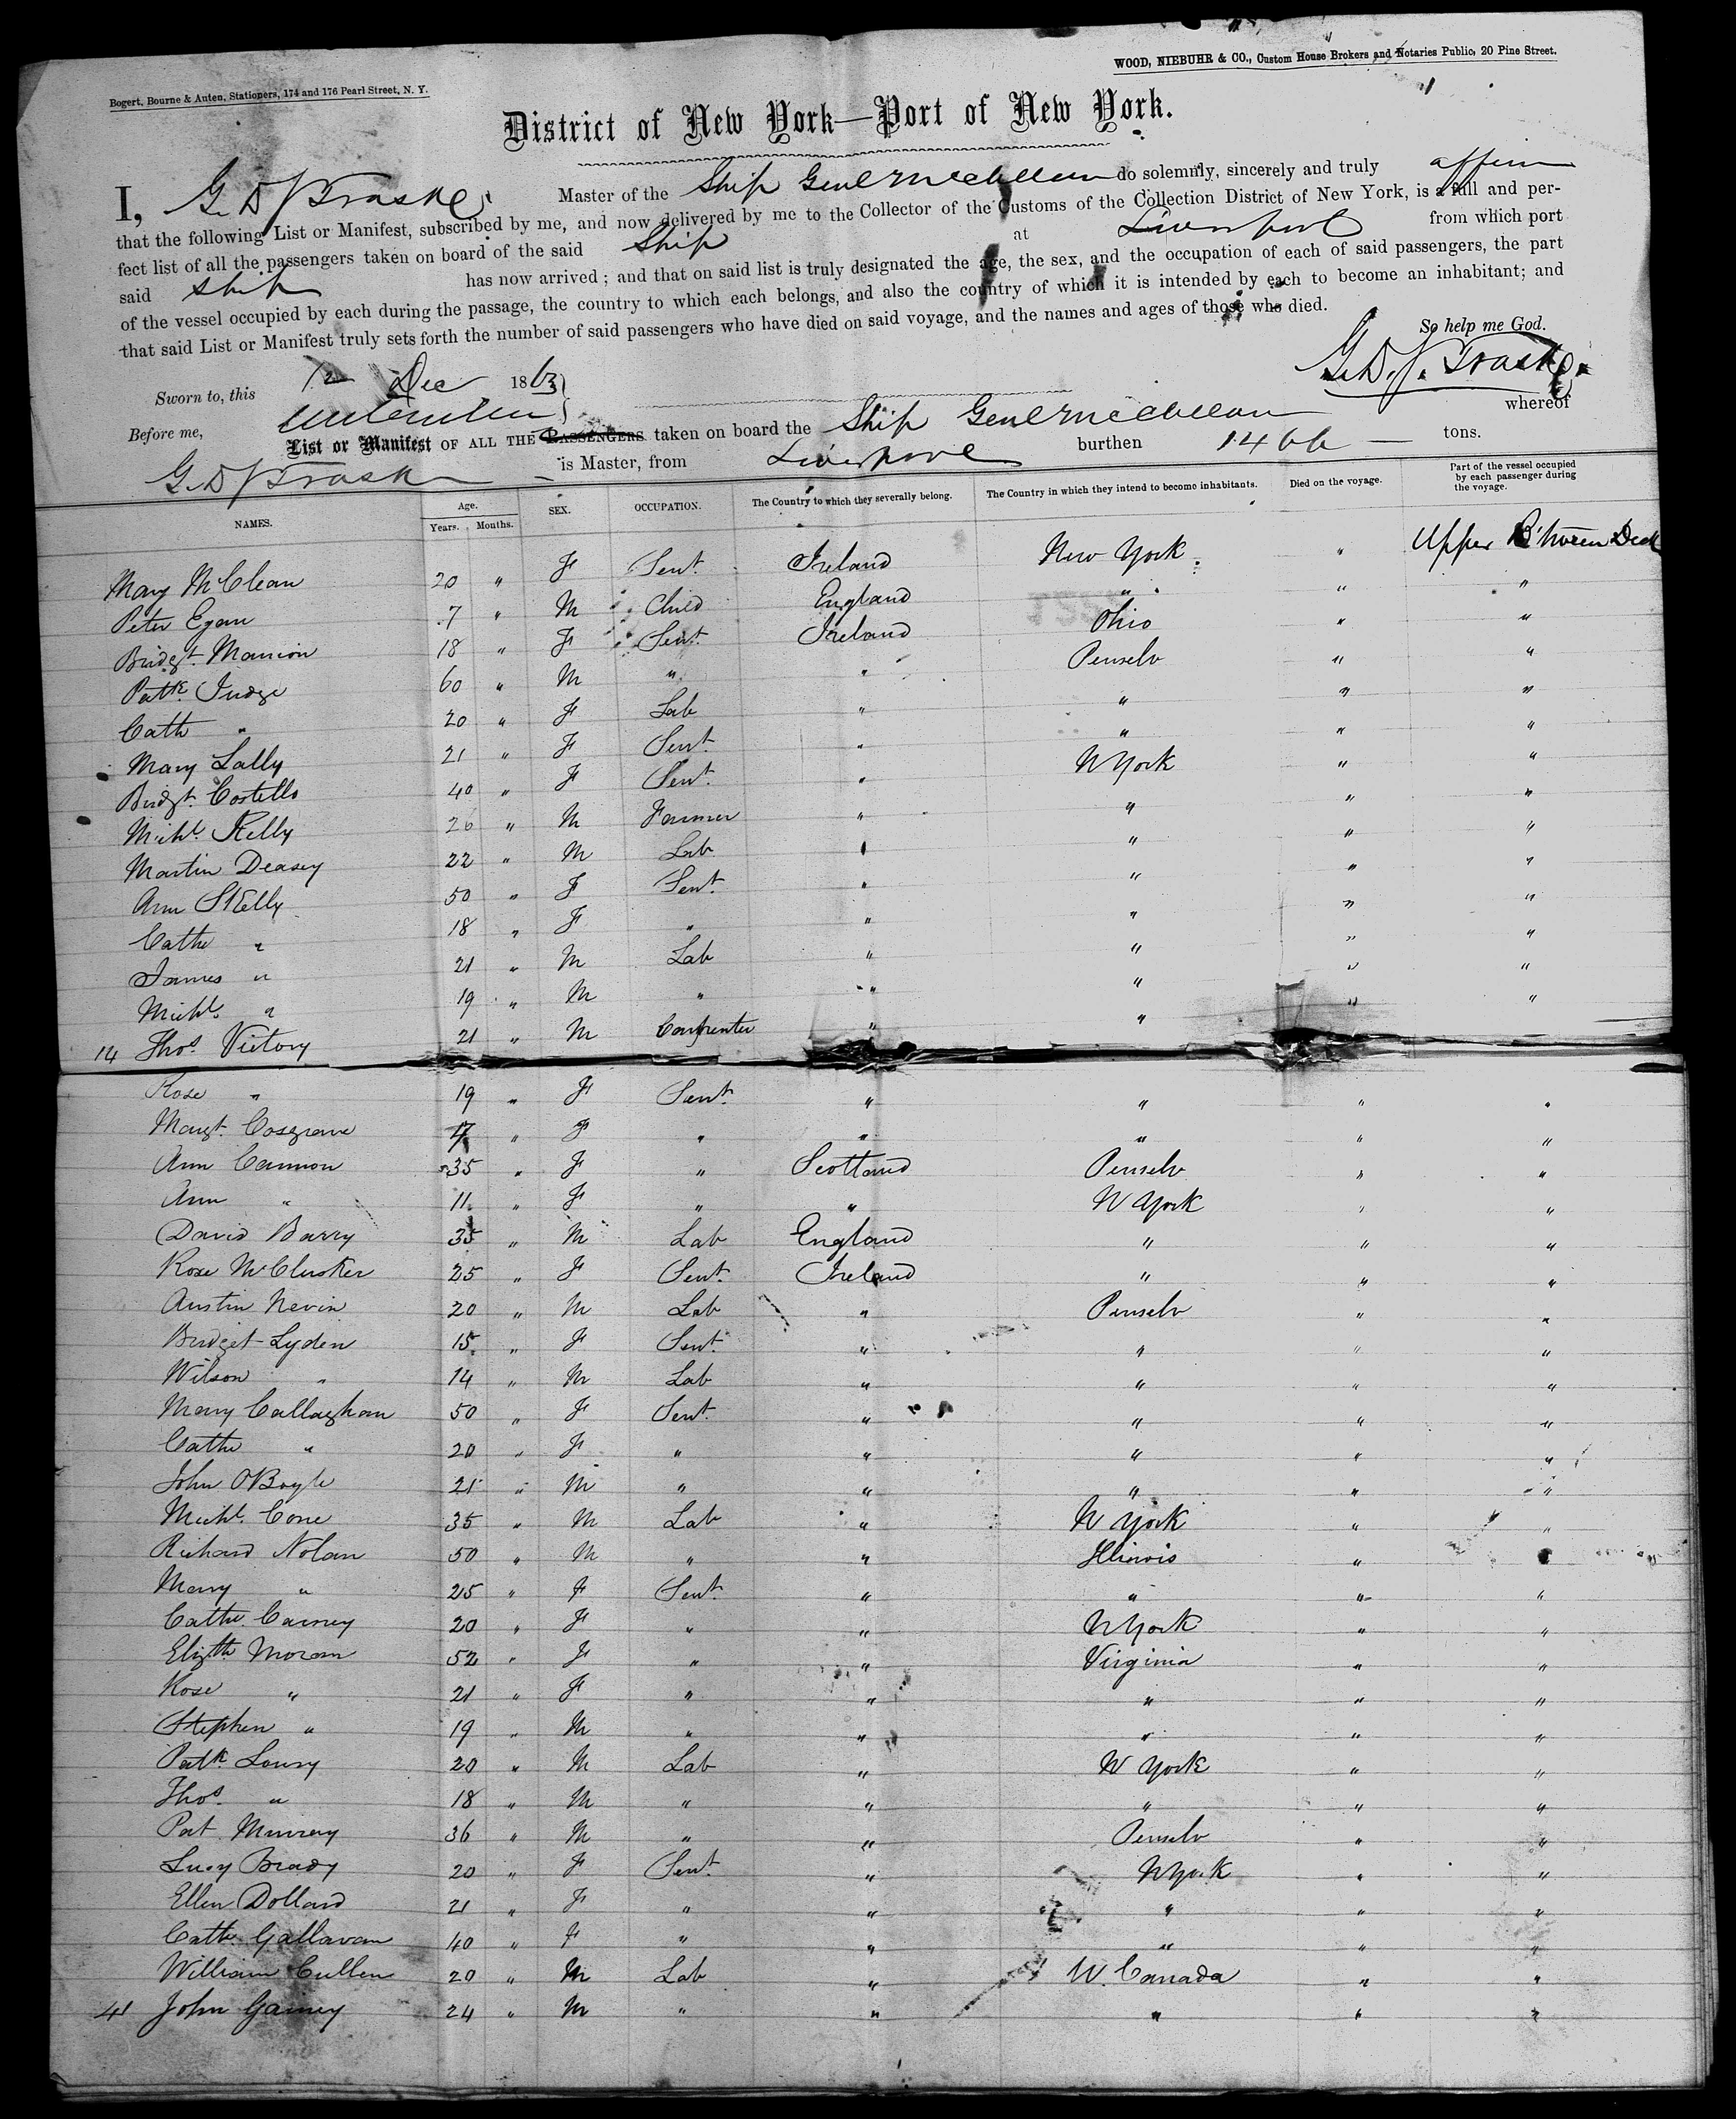 WOOD, NIEBUHR & CO., Custom House Brokers and Notaries Public, 20 Pine Street.
Bogert, Bourne & Auten, Stationers, 174 and 176 Pearl Street, N. Y.
District of New York—Port of New York.
I, G. D. S. Trask Master of the Ship Genl McClellan do solemnly, sincerely and truly affirm
that the following List or Manifest, subscribed by me, and now delivered by me to the Collector of the Customs of the Collection District of New York, is a full and per-
fect list of all the passengers taken on board of the said Ship at Liverpool from which port
said Ship has now arrived; and that on said list is truly designated the age, the sex, and the occupation of each of said passengers, the part
of the vessel occupied by each during the passage, the country to which each belongs, and also the country of which it is intended by each to become an inhabitant; and
that said List or Manifest truly sets forth the number of said passengers who have died on said voyage, and the names and ages of those who died.
So help me God.
Sworn to, this Dec 1863 G. D. S. Trask
Before me,
List or Manifest OF ALL THE PASSENGERS taken on board the Ship Genl McClellan whereof
G D S Trask is Master, from Liverpool burthen 1466 tons.
NAMES. Age. Years. Months. SEX. OCCUPATION. The Country to which they severally belong. The Country in which they intend to become inhabitants. Died on the voyage. Part of the vessel occupied by each passenger during the voyage.
Mary McClean 20 " F Sert. Ireland New York " Upper B'tween Deck
Peter Egan 7 " M Child England " " "
Bridgt. Mannion 18 " F Sert. Ireland Ohio " "
Patk. Judge 60 " M " " Penselv " "
Cath " 20 " F Lab " " " "
Mary Lally 21 " F Sert. " " " "
Bridgt. Costello 40 " F Sert. " N York " "
Michl. Kelly 26 " M Farmer " " " "
Martin Deasey 22 " M Lab " " "
Ann Skelly 50 " F Sert. " " " "
Cathe " 18 " F " " " " "
James " 21 " M Lab " " " "
Michl. " 19 " M " " " " "
14 Thos. Victory 21 " M Carpenter " " " "
Rose " 19 " F Sert. " " " "
Margt. Cosgrave " F " " " " "
Ann Cannon 35 " F " Scotland Penselv " "
Ann " 11 " F " " N York " "
David Barry 35 " M Lab England " " "
Rose McClusker 25 " F Sert. Ireland " " "
Austin Nevin 20 " M Lab " Penselv " "
Bridget Lyden 15 " F Sert. " " " "
Wilson " 14 " M Lab " " " "
Mary Callaghan 50 " F Sert. " " " "
Cathe " 20 " F " " " " "
John O'Boyle 21 " M " " " " "
Michl. Cone 35 " M Lab " N York " "
Richard Nolan 50 " M " " Illinois " "
Mary " 25 " F Sert. " " " "
Cathe. Carney 20 " F " " N York " "
Elizth Moran 52 " F " " Virginia " "
Rose " 21 " F " " " " "
Stephen " 19 " M " " " " "
Patk. Lowry 20 " M Lab " N York " "
Thos. " 18 " M " " " " "
Pat Murray 36 " M " " Penselv " "
Lucy Brady 20 " F Sert. " N York " "
Ellen Dollard 21 " F " " " " "
Cathe Gallavan 40 " F " " " " "
William Cullen 20 " M Lab " W. Canada " "
41 John Gainey 24 " M " " " " "